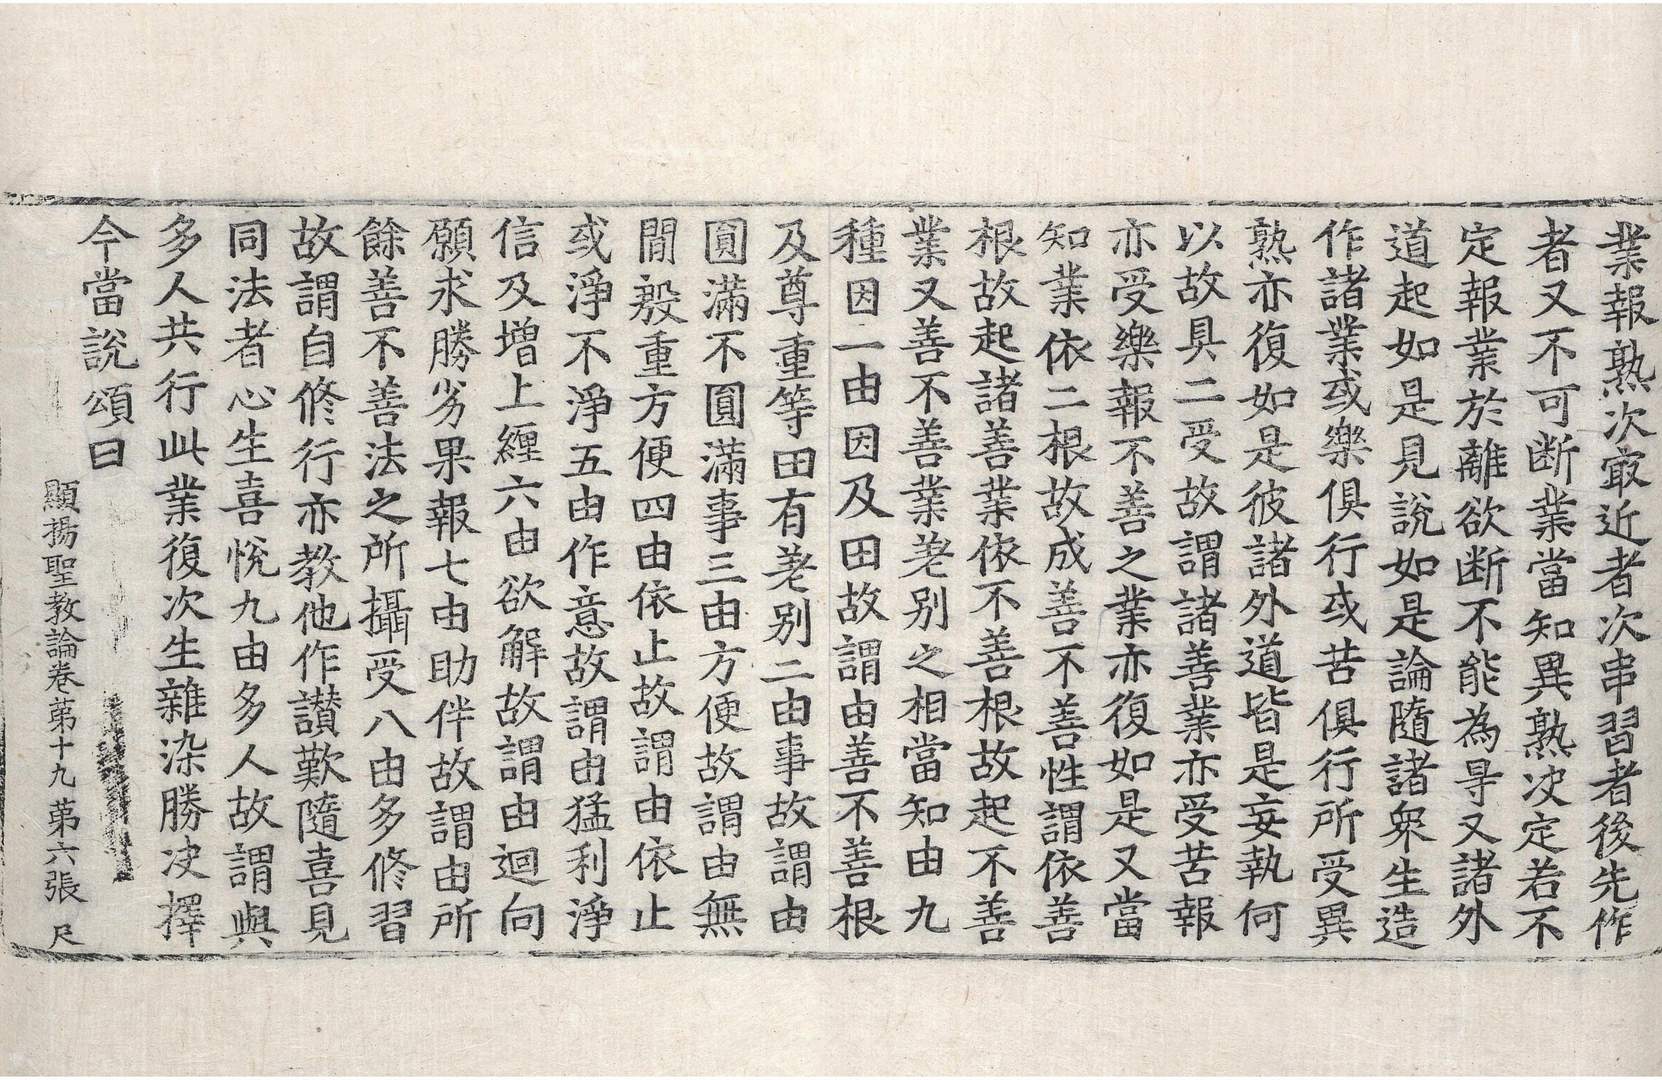 業報熟次㝡近者次串習者後先作
者又不可断業當知異熟决定若不
定報業於離欲断不能為㝵又諸外
道起如是見說如是論隨諸衆生造
作諸業或樂俱行或苦俱行所受異
熟亦復如是彼諸外道皆是妄執何
以故具二受故謂諸善業亦受苦報
亦受樂報不善之業亦復如是又當
知業依二根故成善不善性謂依善
根故起諸善業依不善根故起不善
業又善不善業差别之相當知由九
種因一由因及田故謂由善不善根
及尊重等田有差别二由事故謂由
圓滿不圓滿事三由方便故謂由無
間殷重方便四由依止故謂由依止
或淨不淨五由作意故謂由猛利淨
信及增上纏六由欲解故謂由迴向
願求勝劣果報七由助伴故謂由所
餘善不善法之所攝受八由多修習
故謂自修行亦教他作讃歎隨喜見
同法者心生喜悅九由多人故謂與
多人共行此業復次生雜染勝决擇
今當說頌曰
顯揚聖教論卷第十九 第六張 尺